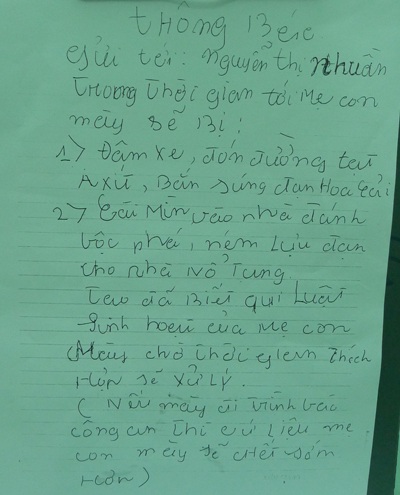 THÔNG BÁO
Gửi tới: Nguyễn Thị Nhuần
Trong thời gian tới mẹ con
mày sẽ bị:
1> Đâm xe, đón đường tạt
Axít, Bắn súng đạn Hoa cải
2> Gài Mìn vào nhà đánh
bộc phá, ném Lựu đạn
cho nhà nổ Tung.
Tao đã Biết qui Luật
sinh hoạt của mẹ con
Mày chờ thời gian thích
Hợp sẽ xử lý.
( Nếu mày đi trình báo
công an thì cứ liệu mẹ
con mày sẽ chết sớm
Hơn )